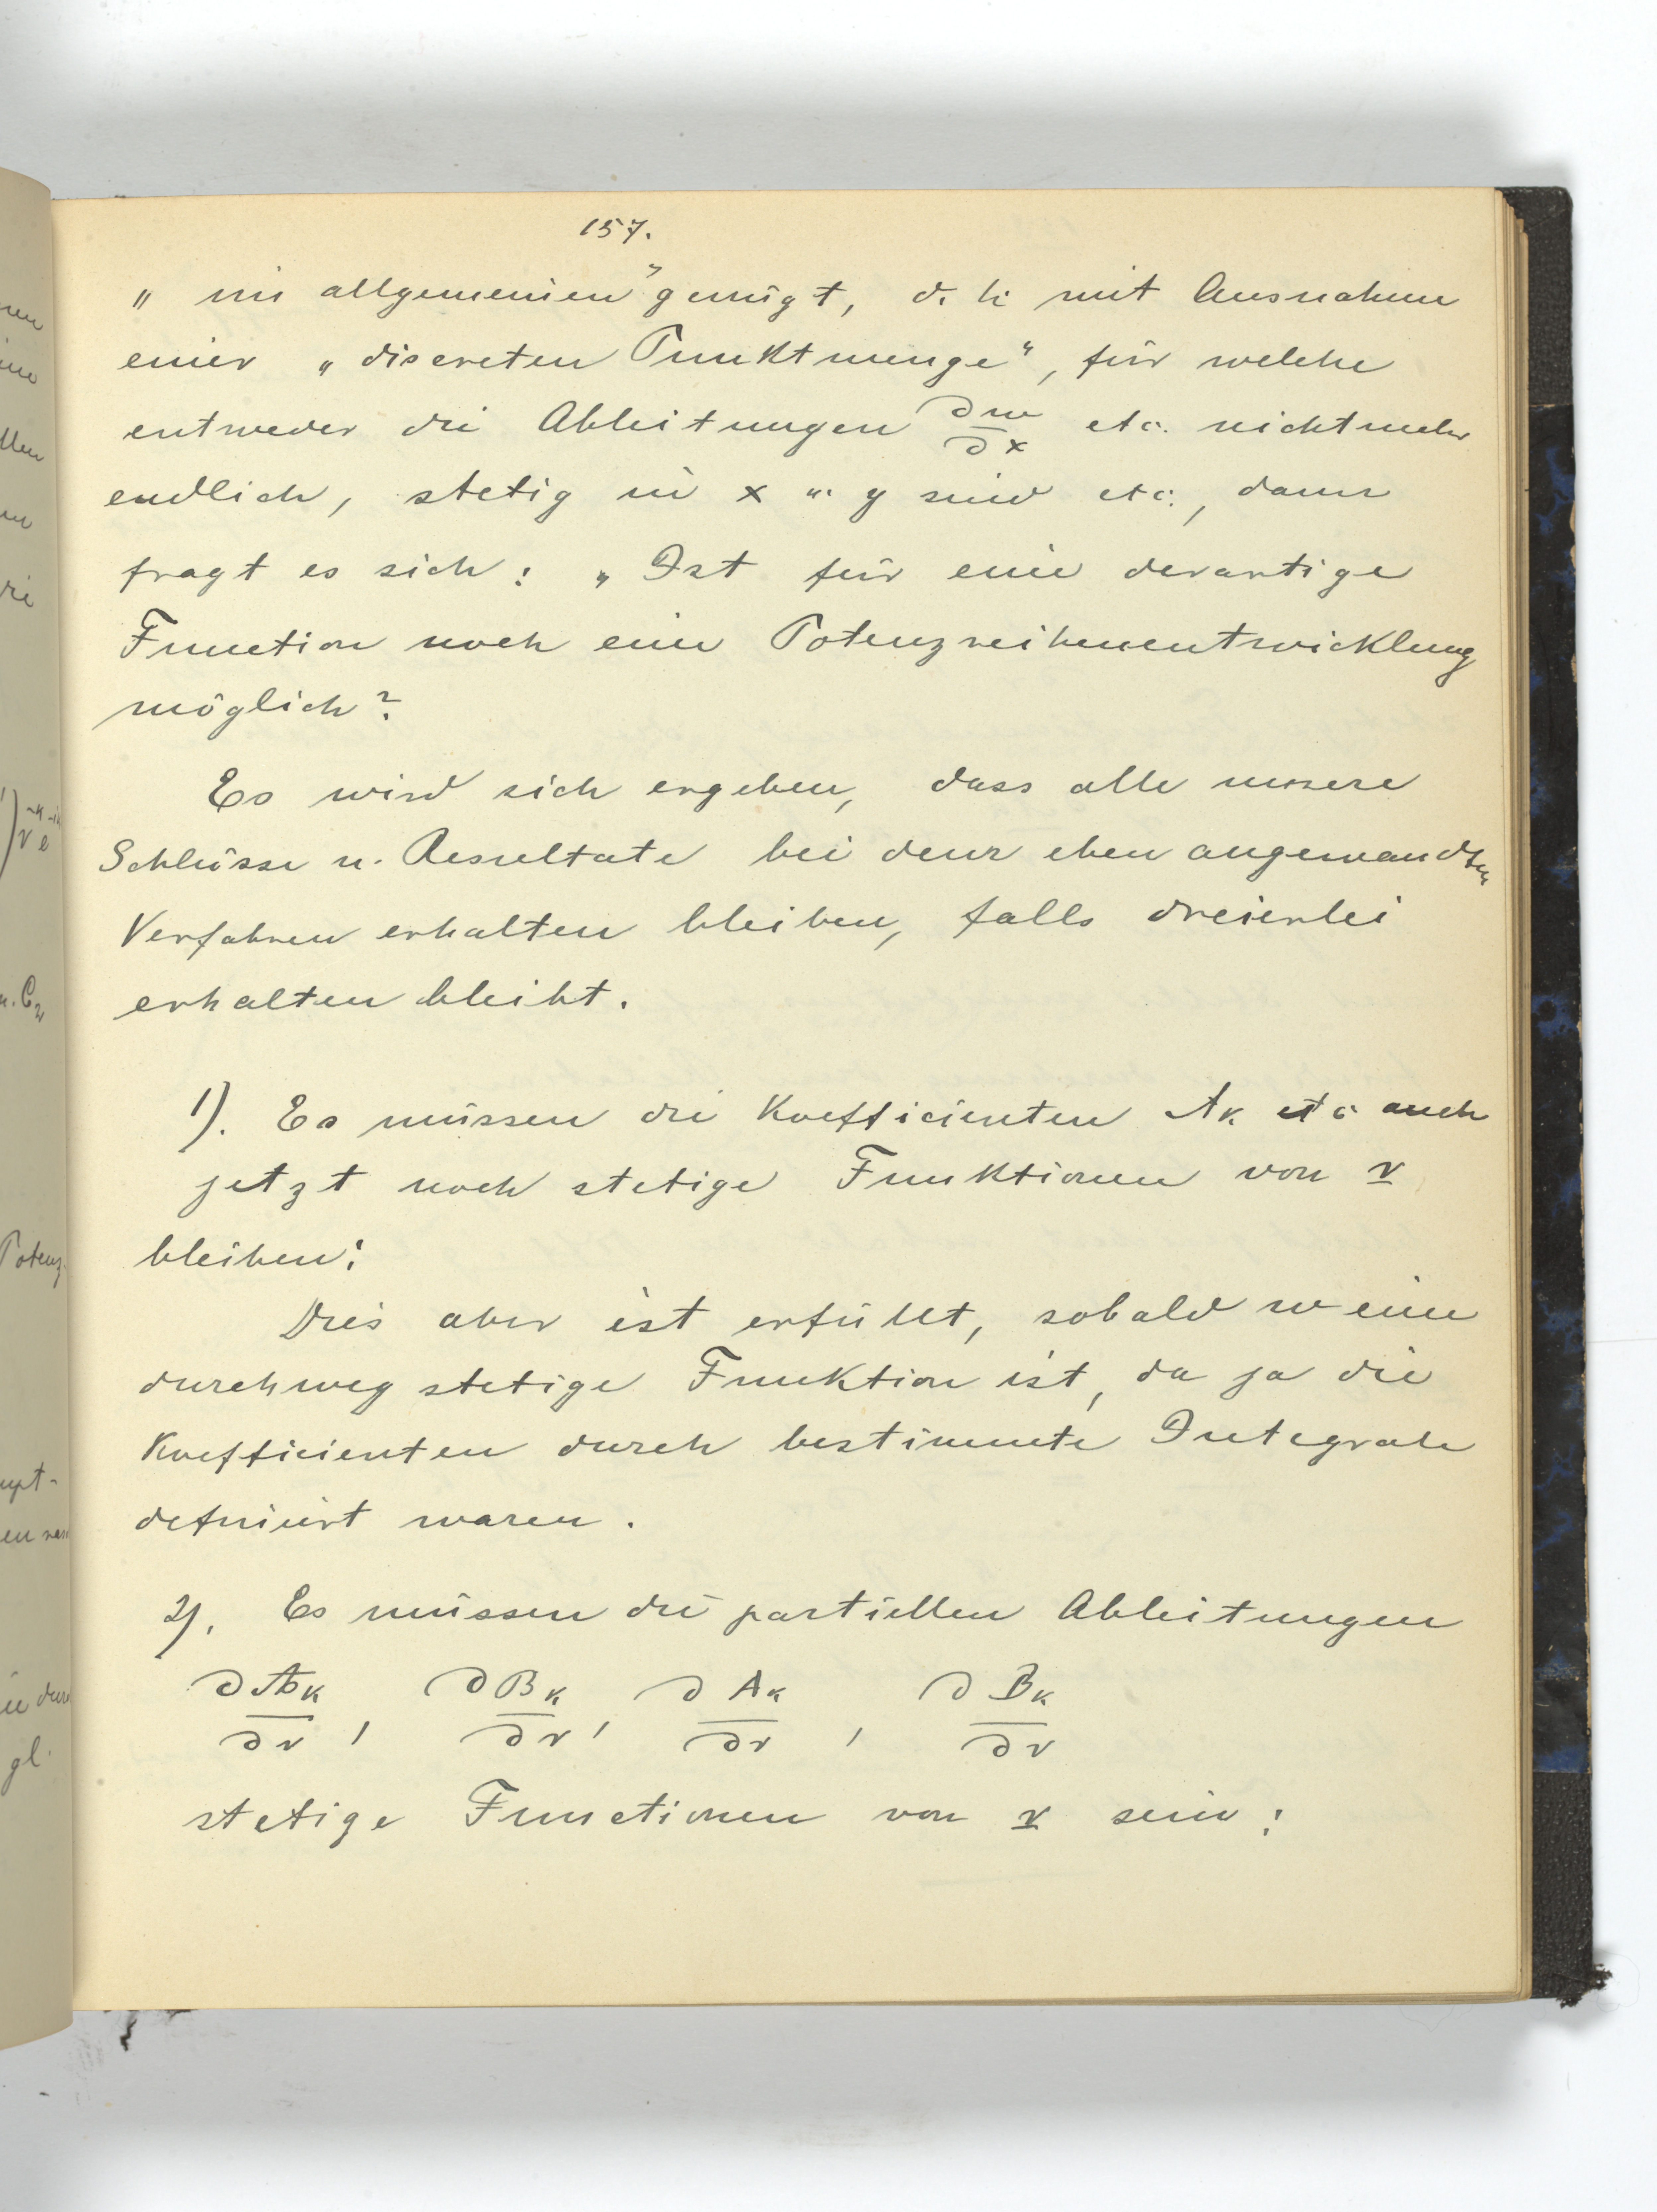 157.
„ im allgemeinen" genügt, d. h. mit Ausnahme
einer „discreten Punktmenge", für welche
entweder die Ableitungen ∂w/∂x etc. nicht mehr
endlich, stetig in x u. y sind etc., dann
fragt es sich: „Ist für eine derartige
Function noch eine Potenzreihenentwicklung
möglich?
Es wird sich ergeben, dass alle unsere
Schlüsse u. Resultate bei dem eben angewandten
Verfahren erhalten bleiben, falls dreierlei
erhalten bleibt.
1). Es müssen die Koefficienten Ak etc auch
jetzt noch stetige Funktionen von r
bleiben:
Dies aber ist erfüllt, sobald w eine
durchweg stetige Funktion ist, da ja die
Koefficienten durch bestimmte Integrale
definiert waren.
2). Es müssen die partiellen Ableitungen
∂Ak/∂r, ∂Bk/∂r, ∂Ak/∂r, ∂Bk/∂r
stetige Functionen von r sein: